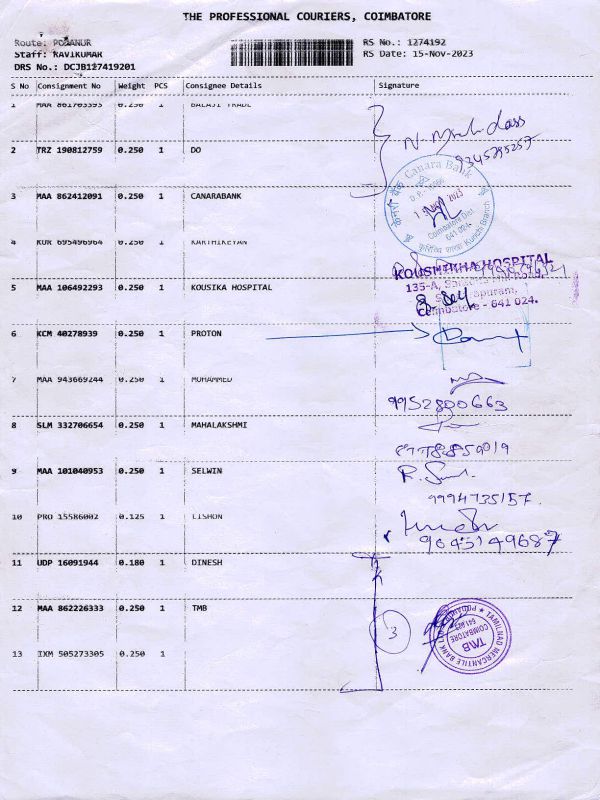 THE PROFESSIONAL COURIERS, COIMBATORE
Route: PODANUR
Staff: RAVIKUMAR
DRS No.: DCJB127419201
RS No.: 1274192
RS Date: 15-Nov-2023
S No Consignment No Weight PCS Consignee Details Signature
1 MAA 861703593 0.250 1 BALAJI TRADE
2 TRZ 190812759 0.250 1 DO
9345795257
Canara Bank
Coimbatore Dist
641 024.
Kurichi Branch
3 MAA 862412091 0.250 1 CANARABANK
4 KUR 695496964 0.250 1 KARTHIKEYAN
KOUSHIKHA HOSPITAL
Coimbatore - 641 024.
5 MAA 106492293 0.250 1 KOUSIKA HOSPITAL
6 KCM 40278939 0.250 1 PROTON
7 MAA 943669244 0.250 1 MOHAMMED
9952800663
8 SLM 332706654 0.250 1 MAHALAKSHMI
9 MAA 101040953 0.250 1 SELWIN
9994735157.
10 PRO 15586002 0.125 1 LISHON
9645149687
11 UDP 16091944 0.180 1 DINESH
12 MAA 862226333 0.250 1 TMB
3
TAMILNAD MERCANTILE BANK LTD
PODANUR
TMB
COIMBATORE
13 IXM 505273305 0.250 1